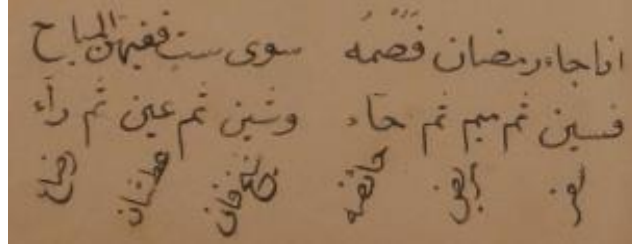 اذا جاء رمضان فَصُمْهُ سوى ست ففيهن المباح
فسين ثم ميم ثم حَاء وشين ثم عين ثم راء
سفر حائضه شيخ فان عطشان رضاع